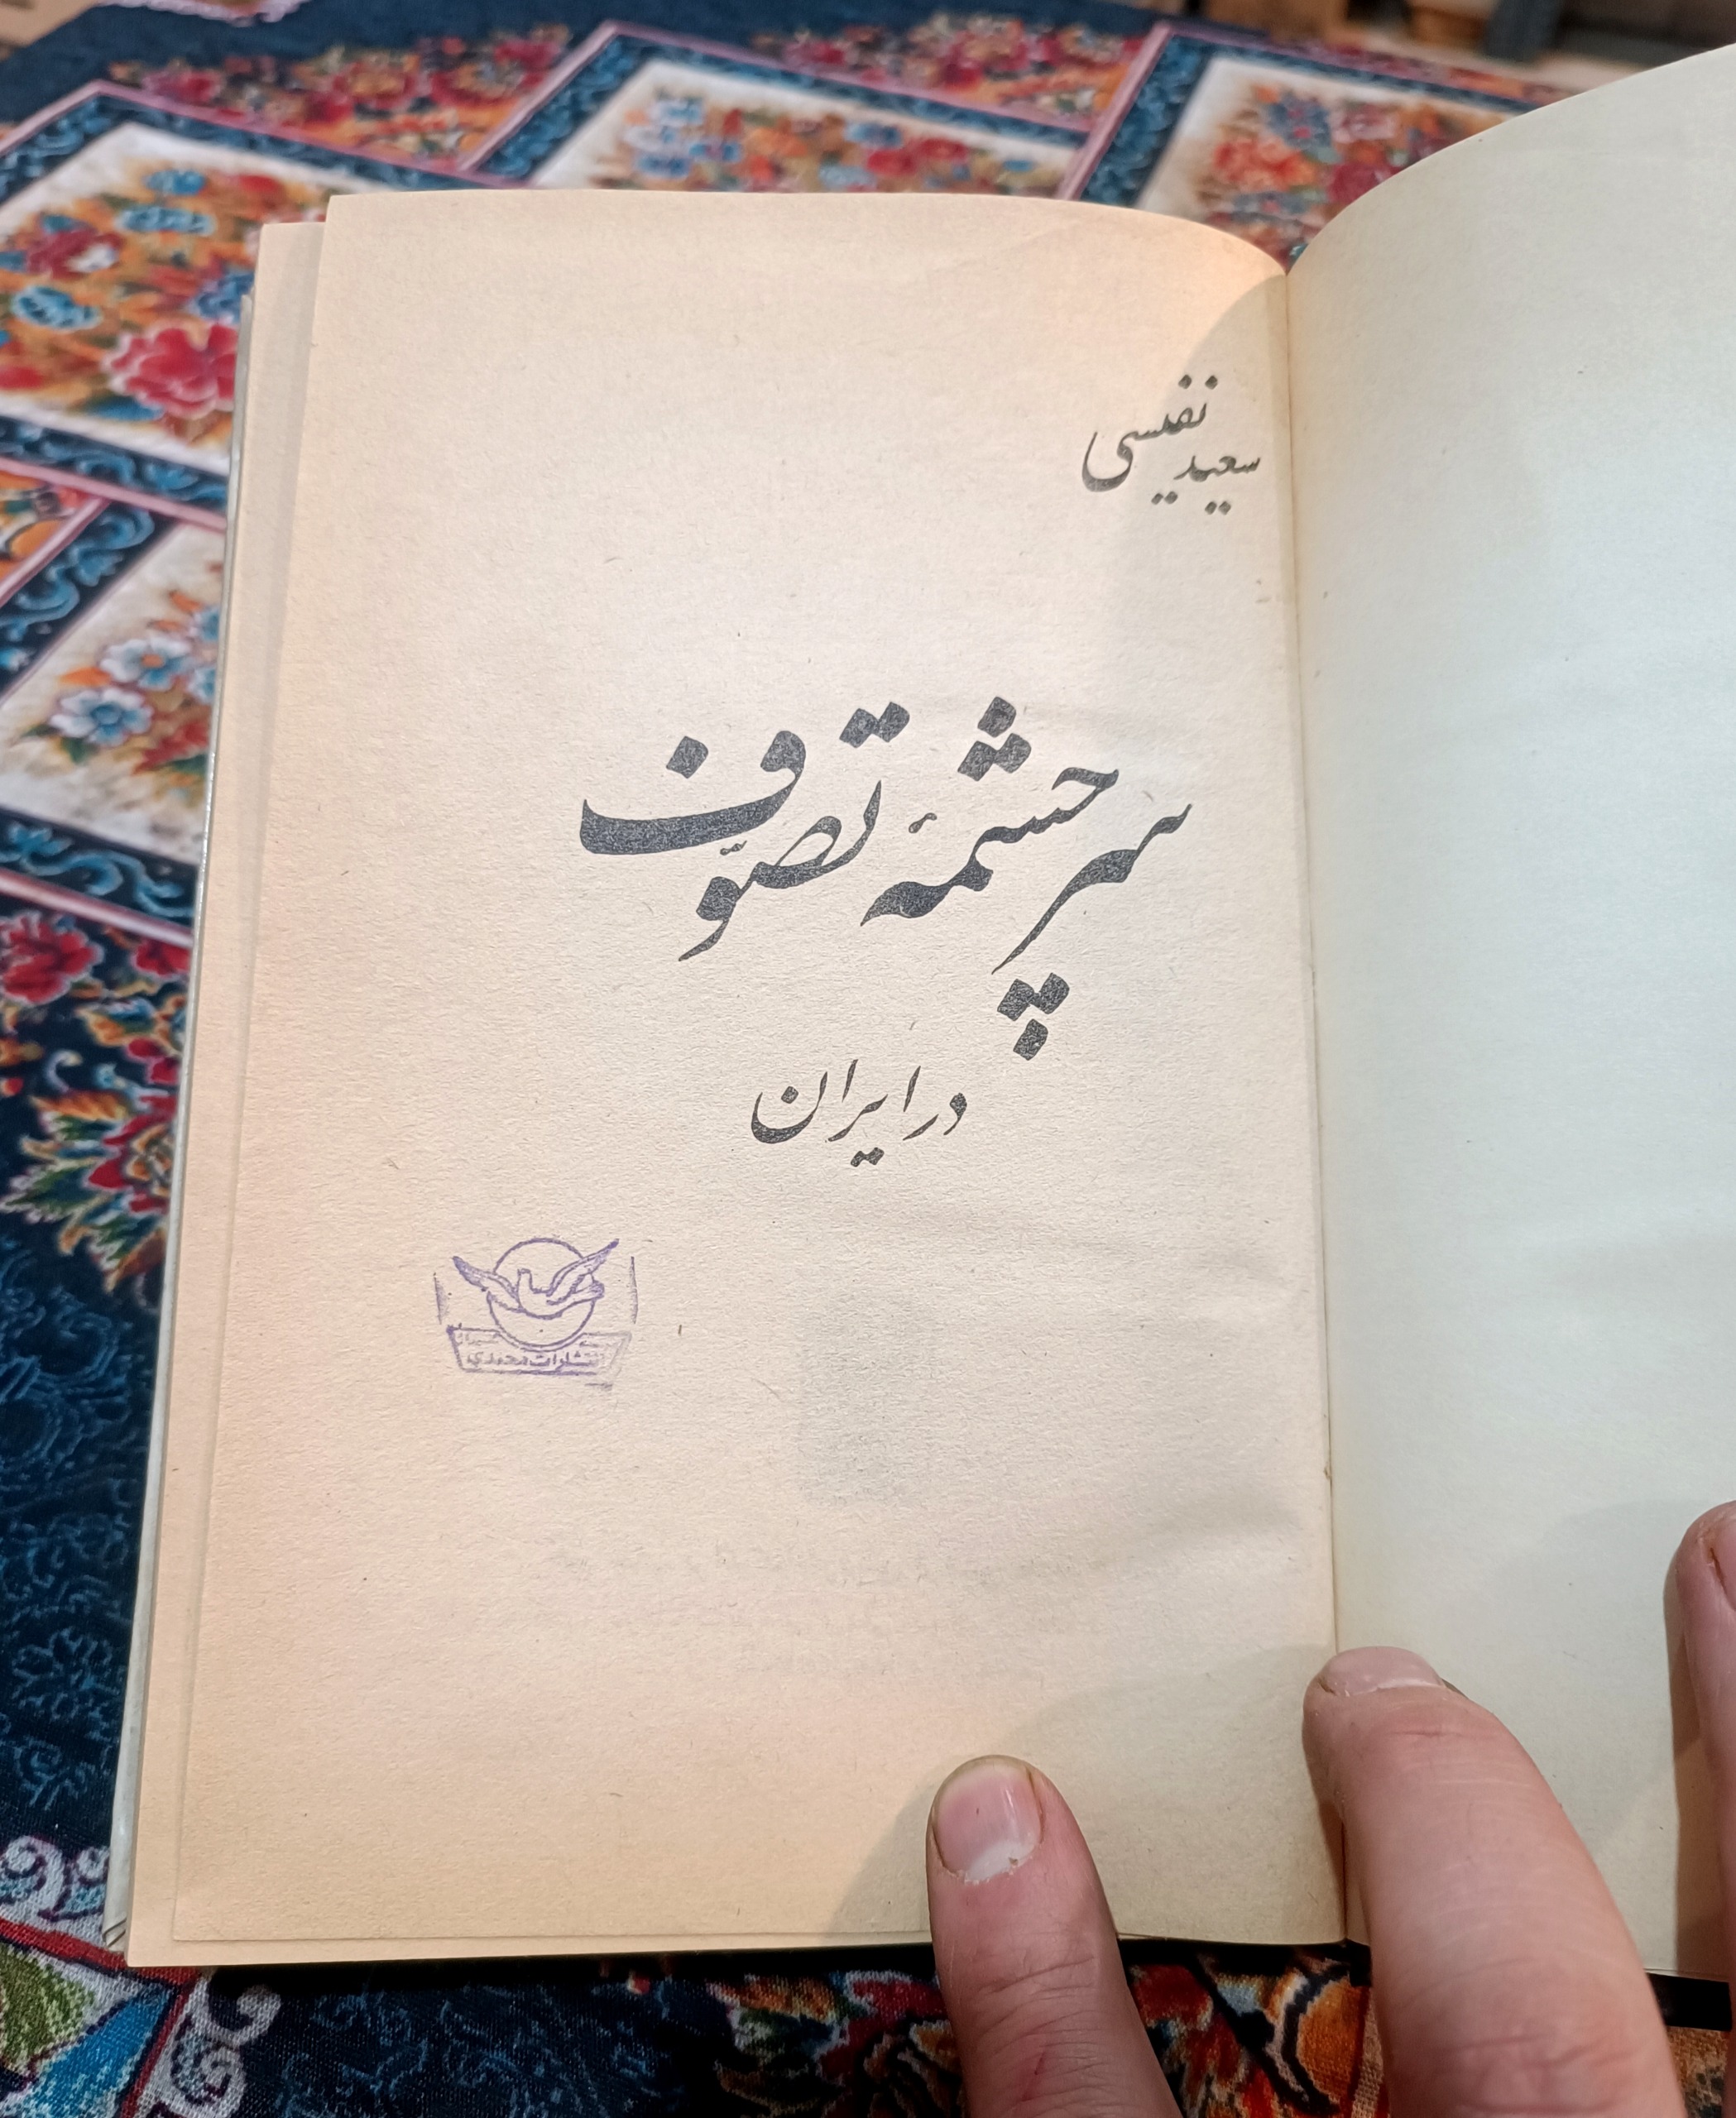 سعید نفیسی
سرچشمهٔ تصوّف
در ایران
انتشارات محمدی